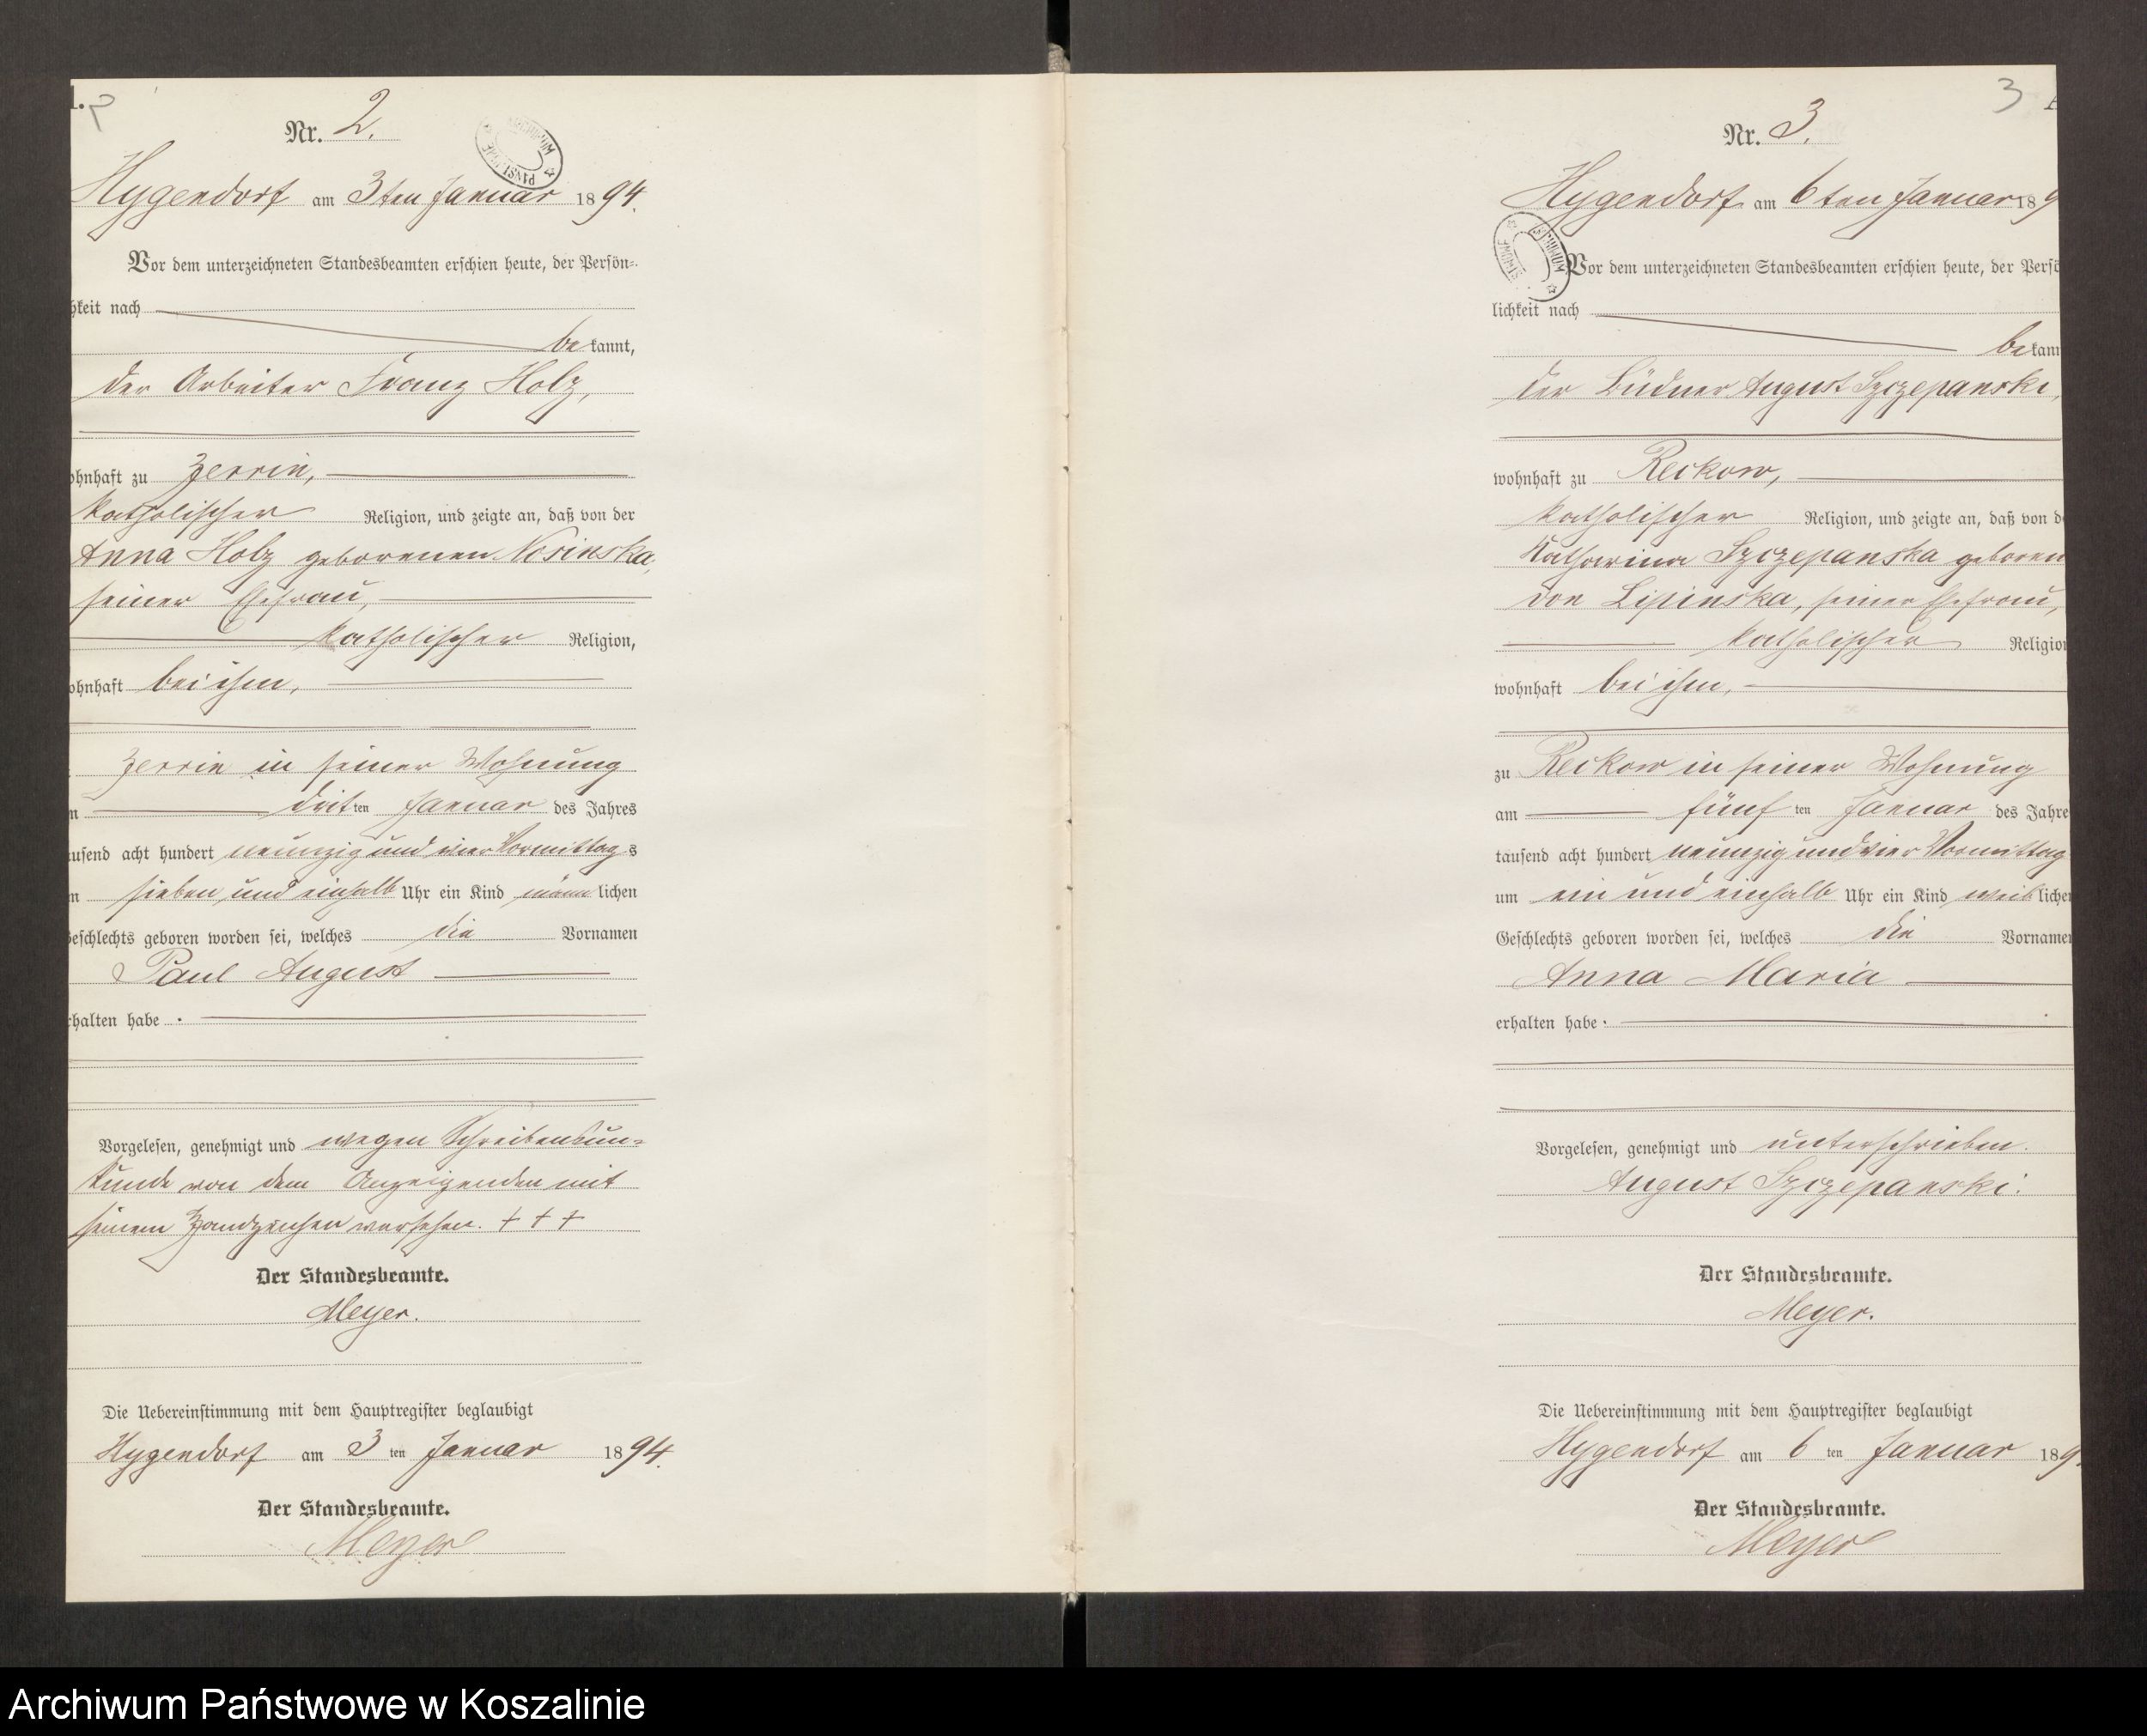 2
Nr. 2.
Hygendorf am 3ten Januar 1894.
Vor dem unterzeichneten Standesbeamten erschien heute, der Persön-
hkeit nach
be kannt,
der Arbeiter Franz Holz,
ohnhaft zu Zerrin,
katholischer Religion, und zeigte an, daß von der
Anna Holz geborenen Nosinska,
seiner Ehefrau,
katholischer Religion,
ohnhaft bei ihm,
Zerrin in seiner Wohnung
n drit ten Januar des Jahres
usend acht hundert neunzig und vier Vormittags
m sieben und einhalb Uhr ein Kind männ lichen
Geschlechts geboren worden sei, welches die Vornamen
Paul August
rhalten habe.
Vorgelesen, genehmigt und wegen Schreibensun-
kunde von dem Anzeigenden mit
seinem Handzeichen versehen. + + +
Der Standesbeamte.
Meyer.
Die Uebereinstimmung mit dem Hauptregister beglaubigt
Hygendorf am 3 ten Januar 1894.
Der Standesbeamte.
Meyer
3
Nr. 3.
Hygendorf am 6ten Januar 189
Vor dem unterzeichneten Standesbeamten erschien heute, der Persö
lichkeit nach
be kann
der Büdner August Szczepanski,
wohnhaft zu Reckow,
katholischer Religion, und zeigte an, daß von d
Katharina Szczepanska geboren
von Lipinska, seiner Ehefrau,
katholischer Religion
wohnhaft bei ihm,
zu Reckow in seiner Wohnung
am fünf ten Januar des Jahre
tausend acht hundert neunzig und vier Vormittag
um ein und einhalb Uhr ein Kind weib liche
Geschlechts geboren worden sei, welches die Vornamen
Anna Maria
erhalten habe.
Vorgelesen, genehmigt und unterschrieben.
August Szczepanski.
Der Standesbeamte.
Meyer.
Die Uebereinstimmung mit dem Hauptregister beglaubigt
Hygendorf am 6 ten Januar 189
Der Standesbeamte.
Meyer
Archiwum Państwowe w Koszalinie